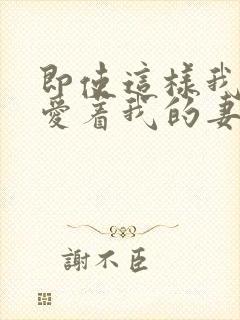 即使這樣我
愛着我的妻
謝不臣